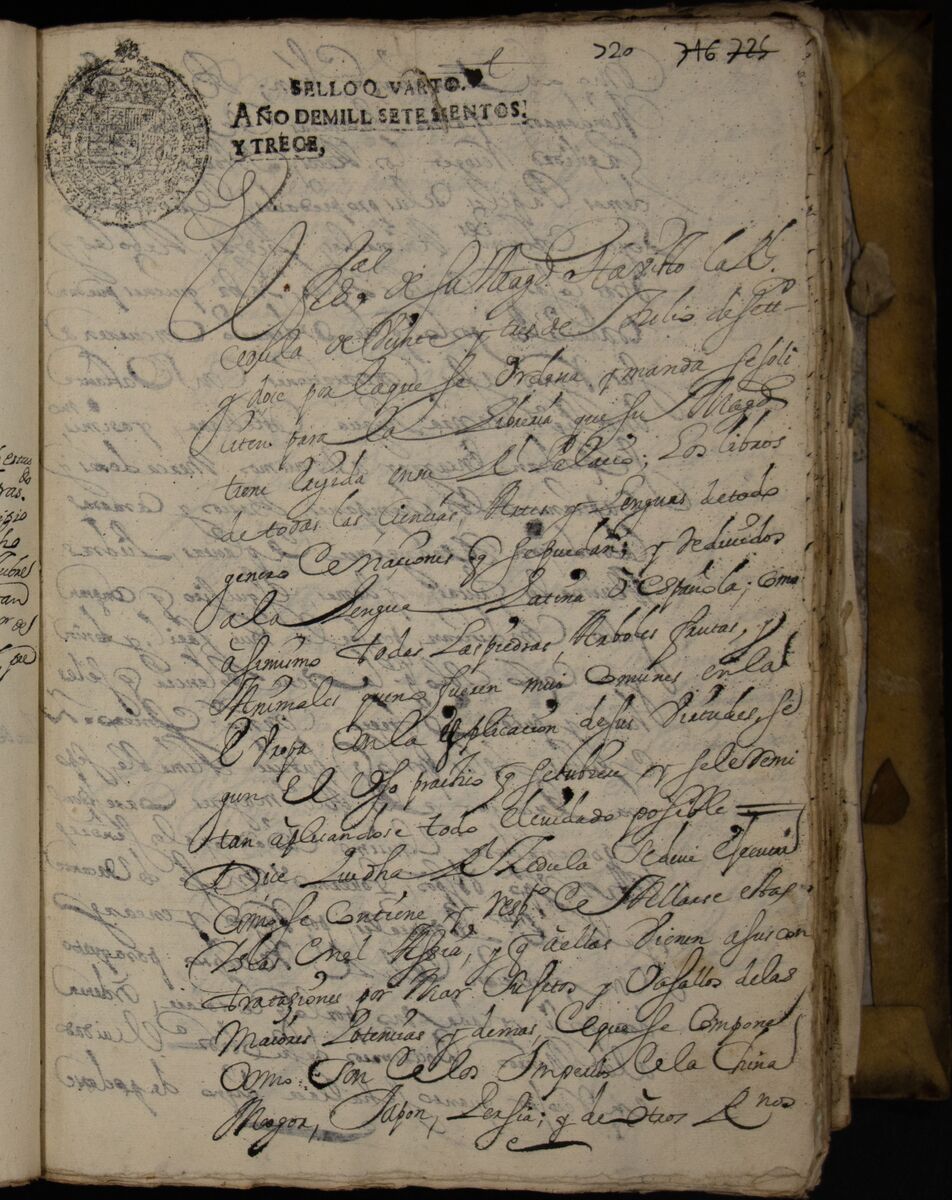 720 746 725
SELLO QVARTO.
AÑO DE MILL SETESIENTOS,
Y TRECE,
El
fiscal de su Magd. Ha visto la Rl.
cedula de Veinte y tres de Julio de sett.º
y doce por la que se Ordena, y manda se soli
citen para la Libreria que su Magd
tiene erijida en su Rl. Palacio; Los libros
de todas las Ciencias, Artes y Lenguas de todo
genero de Naciones q se puedan; y reducidos
a la Lengua Latina ô Española; como
âsimismo todas las piedras, Arboles frutas, y
Animales que no fueren mui comunes en la
Europa con la explicacion de sus virtudes, se
gun El Uso practico q setubiese y se le remi
tan âplicandose todo El cuidado posible =
Dice Que dha Rl. Zedula se deue Executar
como se contiene y respto. de Allarse estas
Yslas en el Assia, y q â ellas vienen a sus con
trataziones por Mar Sujetos y Vasallos de las
Maiores Potencias y demas, de que se compone
como son de los Imperios de la China
Mogor, Japon, Persia; y de ôtros Rnos